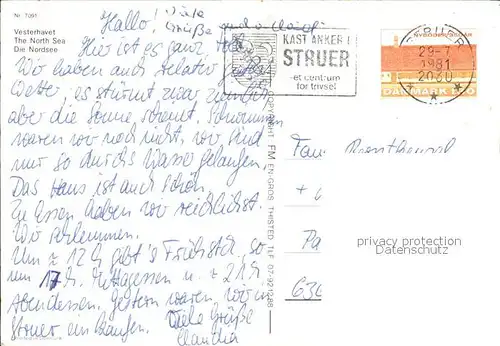 Nr. 7091
Vesterhavet
The North Sea
Die Nordsee
Hallo! Viele Grüße
Hier ist es ganz toll.
Wir haben auch relativ gutes
Wetter, es stürmt zwar ziemlich
aber die Sonne scheint. Schwimmen
waren wir noch nicht, wir sind
nur so durchs Wasser gelaufen.
Das Haus ist auch schön.
Zu Essen haben wir reichlichst.
Wir schlemmen.
Um 12 h gibt's Frühstück, so
um 17 h Mittagessen u. 21 h
Abendessen. Gestern waren wir in
Struer einkaufen. Viele Grüße
Claudia
KAST ANKER I
STRUER
-et centrum
for trivsel
STRUER
29-7
1981
2030
NYBODER 350 ÅR
DANMARK
COPYRIGHT FM EN-GROS THISTED TLF 07-921288
Fam.
+
privacy protection
Datenschutz